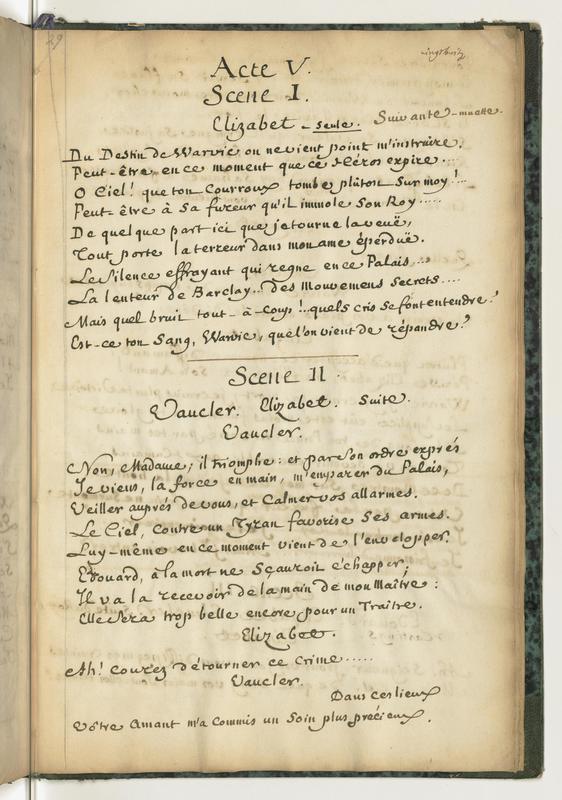 29
Acte V.
Scene I.
Elizabet - seule. Suivante - muette.
Du Destin de Warvic on ne vient point m'instruire.
Peut-être en ce moment que ce Héros expire....
O Ciel! que ton Courroux tombe plûtost sur moy!...
Peut-être à sa fureur qu'il immole son Roy.....
De quelque part ici que je tourne la veuë,
Tout porte la terreur dans mon ame éperduë.
Le silence effrayant qui regne en ce Palais...
La lenteur de Barclay... des Mouvemens secrets....
Mais quel bruit tout-à-coup!.. quels cris se font entendre?
Est-ce ton Sang, Warvic, quel'on vient de répandre?
Scene II.
Vaucler. Elizabet. Suite.
Vaucler.
Non, Madame; il triomphe: et par son ordre exprés
Je viens, la force en main, m'emparer du Palais,
Veiller auprés de vous, et Calmer vos allarmes.
Le Ciel, contre un Tyran favorise ses armes.
Luy-même en ce moment vient de l'envelopper
Edouard, à la mort ne sçauroit échapper;
Il va la recevoir de la main de mon Maître:
Elle sera trop belle encore pour un Traitre.
Elizabet.
Ah! Courez détourner ce Crime.....
Vaucler.
Dans ces lieux
Vôtre Amant m'a Commis un soin plus précieux.